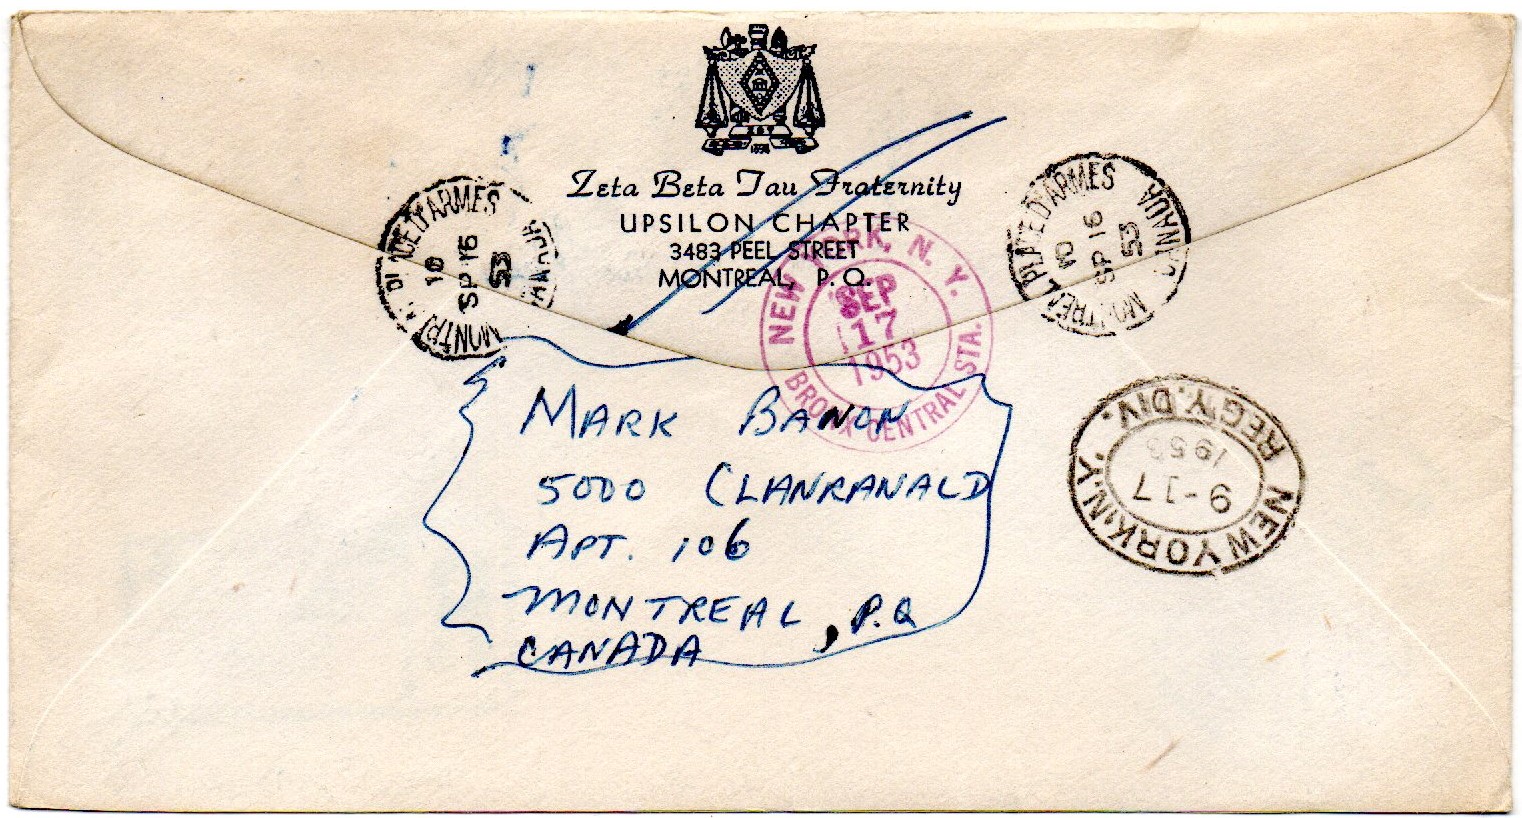 ZBT
1898
Zeta Beta Tau Fraternity
UPSILON CHAPTER
3483 PEEL STREET
MONTREAL, P. Q.
PLACE D'ARMES
10
SP 16
53
MONTREAL
CANADA
NEW YORK, N. Y.
SEP
17
1953
BRONX CENTRAL STA.
MONTREAL PLACE D'ARMES
10
SP 16
53
CANADA
MARK BANON
5000 CLANRANALD
APT. 106
MONTREAL, P.Q
CANADA
NEW YORK, N.Y.
9-17
1953
REG'Y. DIV.